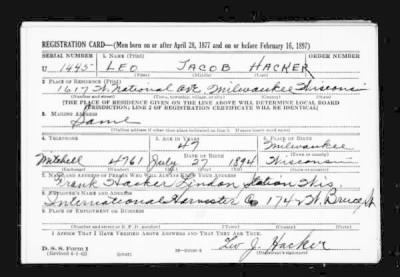 REGISTRATION CARD—(Men born on or after April 28, 1877 and on or before February 16, 1897)
SERIAL NUMBER 1. NAME (Print) ORDER NUMBER
U 1445 LEO JACOB HACKER
(First) (Middle) (Last)
2. PLACE OF RESIDENCE (Print)
1617 W. National Ave. Milwaukee Wisconsin
(Number and street) (Town, township, village, or city) (County) (State)
[THE PLACE OF RESIDENCE GIVEN ON THE LINE ABOVE WILL DETERMINE LOCAL BOARD
JURISDICTION; LINE 2 OF REGISTRATION CERTIFICATE WILL BE IDENTICAL]
3. MAILING ADDRESS
Same
(Mailing address if other than place indicated on line 2. If same insert word same)
4. TELEPHONE 5. AGE IN YEARS 6. PLACE OF BIRTH
47 Milwaukee
DATE OF BIRTH (Town or county)
Mitchell 4761 July 27 1894 Wisconsin
(Exchange) (Number) (Mo.) (Day) (Yr.) (State or country)
7. NAME AND ADDRESS OF PERSON WHO WILL ALWAYS KNOW YOUR ADDRESS
Frank Hacker Lyndon Station Wis.
8. EMPLOYER'S NAME AND ADDRESS
International Harvester Co 1742 W. Bruce St
9. PLACE OF EMPLOYMENT OR BUSINESS
(Number and street or R. F. D. number) (Town) (County) (State)
I AFFIRM THAT I HAVE VERIFIED ABOVE ANSWERS AND THAT THEY ARE TRUE.
D. S. S. Form 1
(Revised 4-1-42) Leo J. Hacker
(Registrant's signature)